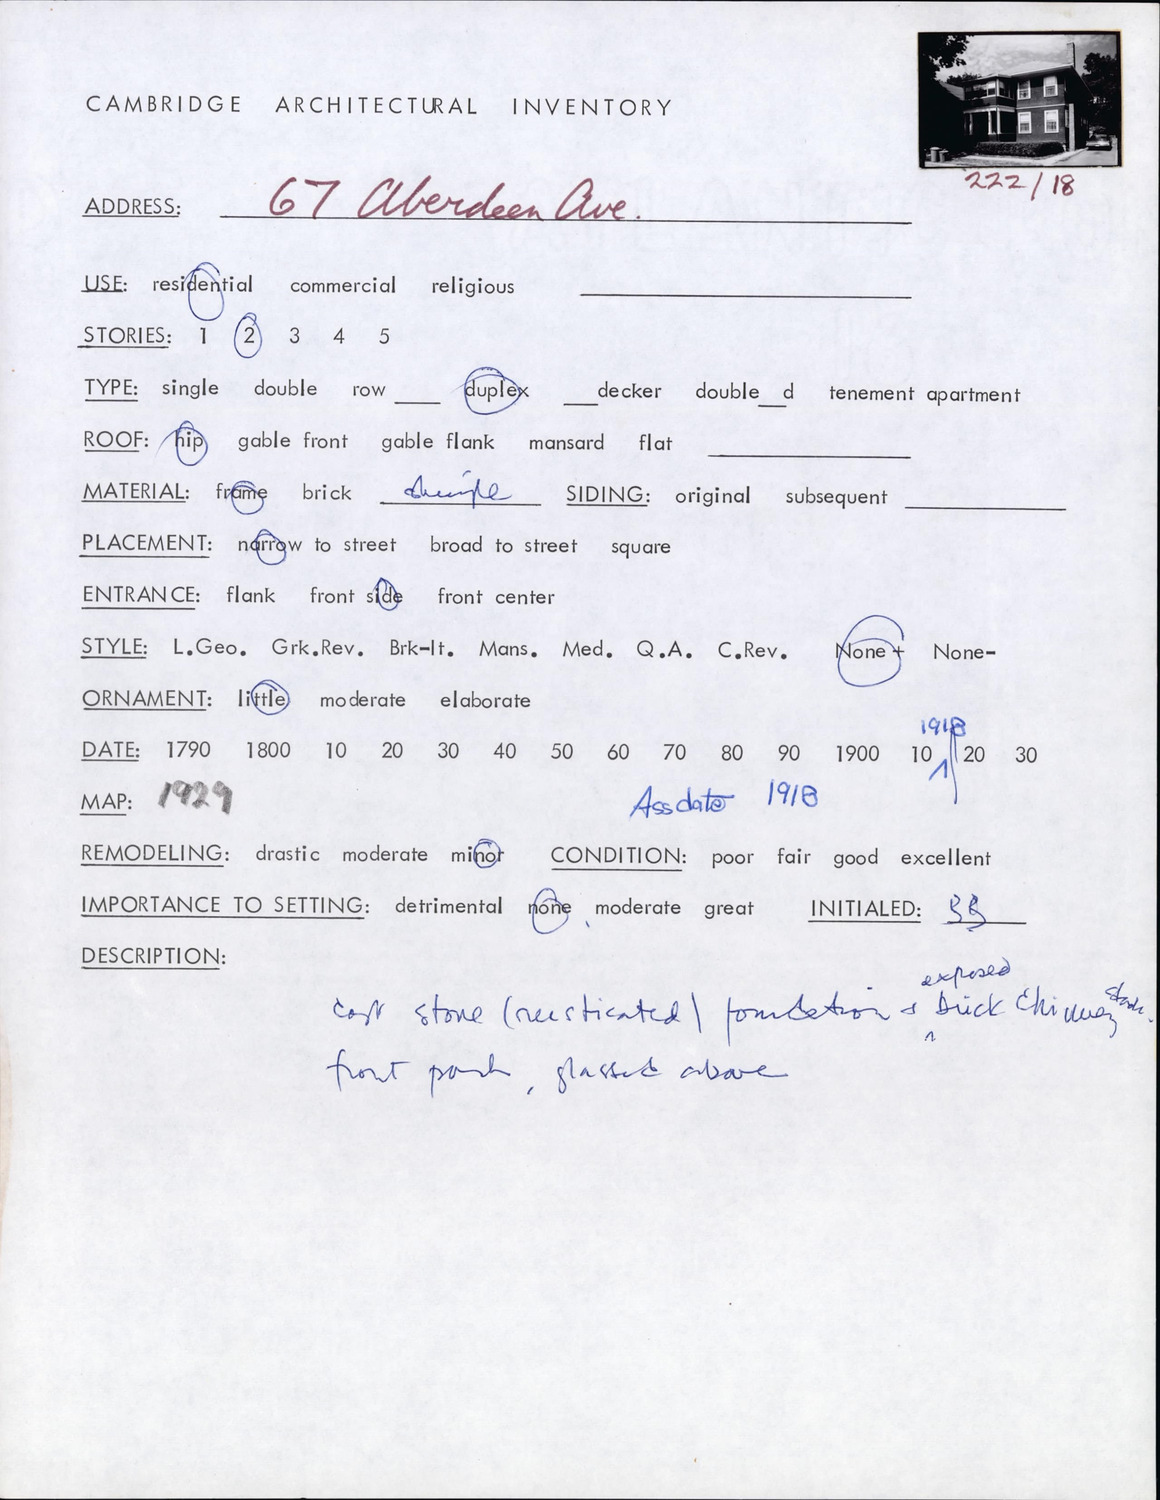 CAMBRIDGE ARCHITECTURAL INVENTORY
222/18
ADDRESS: 67 Aberdeen Ave.
USE: residential commercial religious
STORIES: 1 2 3 4 5
TYPE: single double row ___ duplex ___decker double__d tenement apartment
ROOF: hip gable front gable flank mansard flat
MATERIAL: frame brick shingle SIDING: original subsequent
PLACEMENT: narrow to street broad to street square
ENTRANCE: flank front side front center
STYLE: L.Geo. Grk.Rev. Brk-It. Mans. Med. Q.A. C.Rev. None+ None-
ORNAMENT: little moderate elaborate
1918
DATE: 1790 1800 10 20 30 40 50 60 70 80 90 1900 10 20 30
MAP: 1929 Ass date 1918
REMODELING: drastic moderate minor CONDITION: poor fair good excellent
IMPORTANCE TO SETTING: detrimental none moderate great INITIALED: BB
DESCRIPTION:
exposed
cast stone (rusticated) foundation & brick chimney
front porch, glassed above